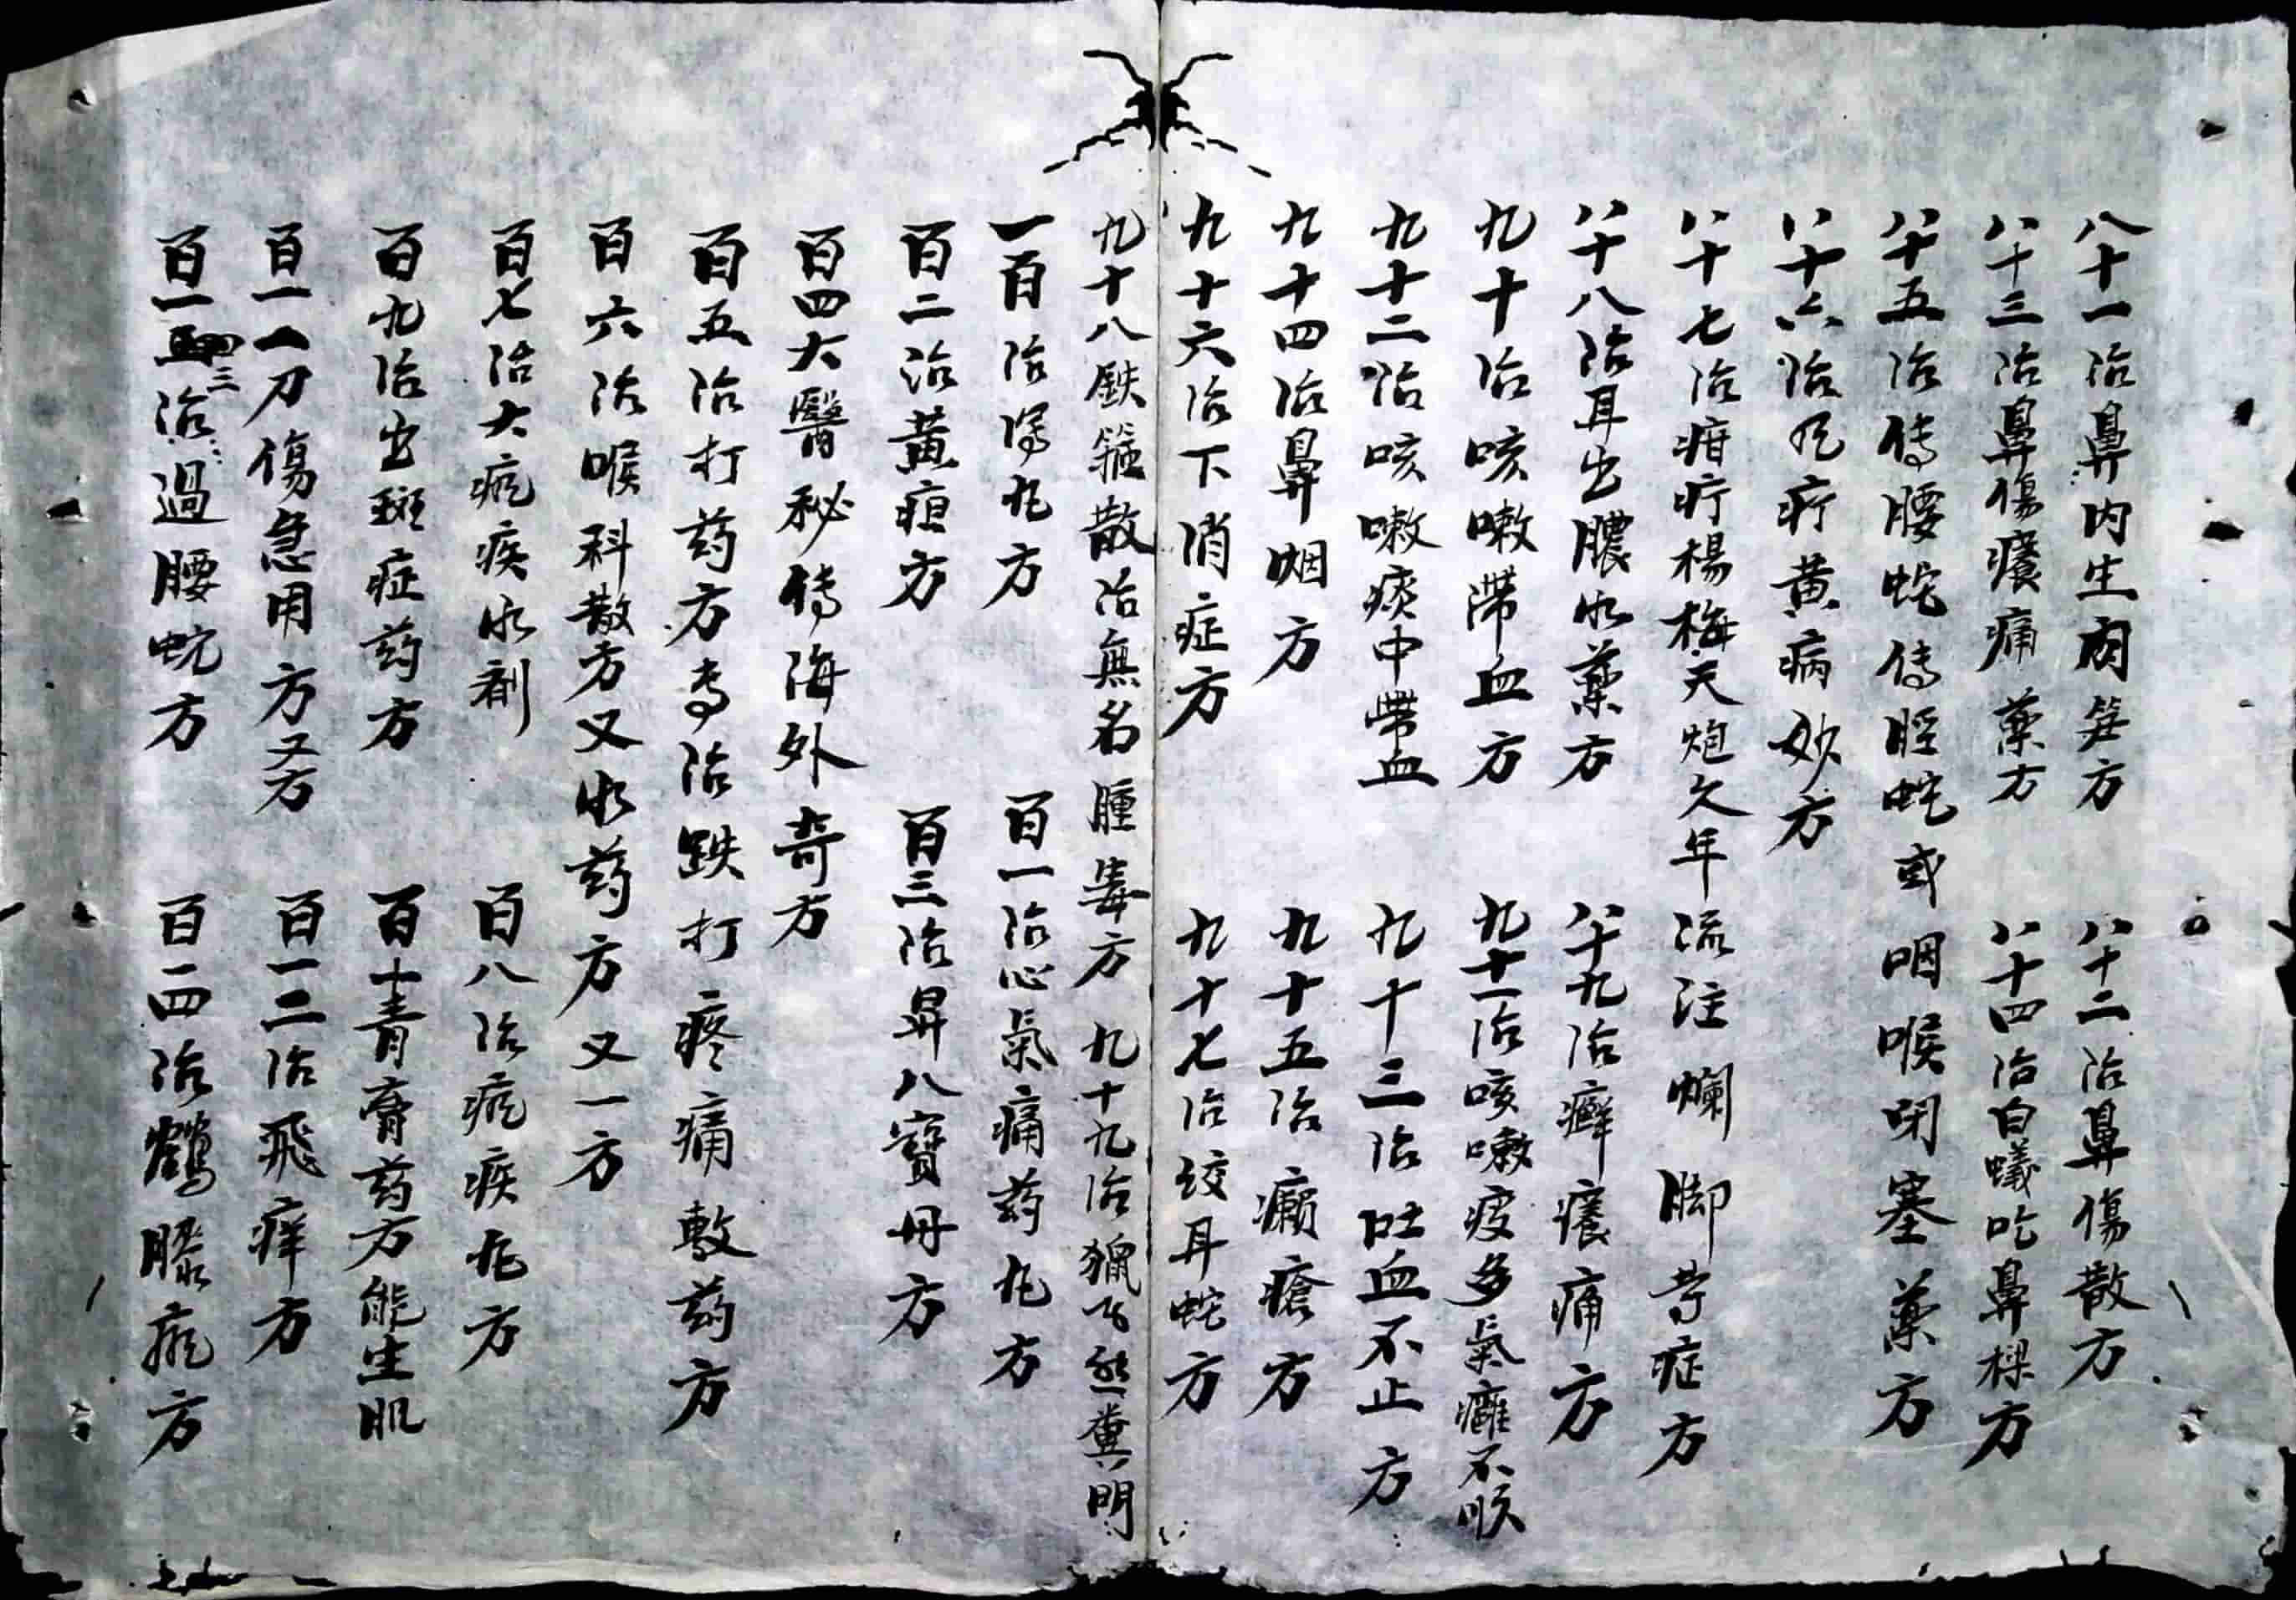 八十一治鼻内生肉笋方 八十二治鼻傷散方
八十三治鼻傷癢痛藥方 八十四治白蟻吃鼻樑方
八十五治傷腰蛇傷脛蛇或咽喉闭塞藥方
八十六治疔黄病妙方
八十七治疳疔楊梅天炮久年流注爛脚等症方
八十八治耳出膿水藥方 八十九治癬癢痛方
九十治咳嗽滞血方 九十一治咳嗽痰多氣癰不順
九十二治咳嗽痰中帶血 九十三治吐血不止方
九十四治鼻烟方 九十五治癩瘡方
九十六治下消症方 九十七治纹耳蛇方
九十八鉄箍散治無名腫毒方 九十九治糞門
一百治瀉丸方 百一治心氣痛药丸方
百二治黄疸方 百三治昇八寳丹方
百四大醫秘傳海外奇方
百五治打药方專治跌打疼痛敷药方
百六治喉科散方又水药方又一方
百七治大疯疾水剂 百八治疯疾丸方
百九治出斑症药方 百十青膏药方能生肌
百一一刀傷急用方又方 百一二治飛痒方
百一三治過腰蛇方 百一四治鶴膝疯方